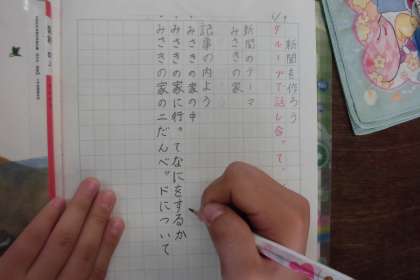 1/9
新聞を作ろう
グループで話し合って、
新聞のテーマ
みさきの家
記事の内よう
・みさきの家の中
・みさきの家に行ってなにをするか
・みさきの家の二だんベッドについて